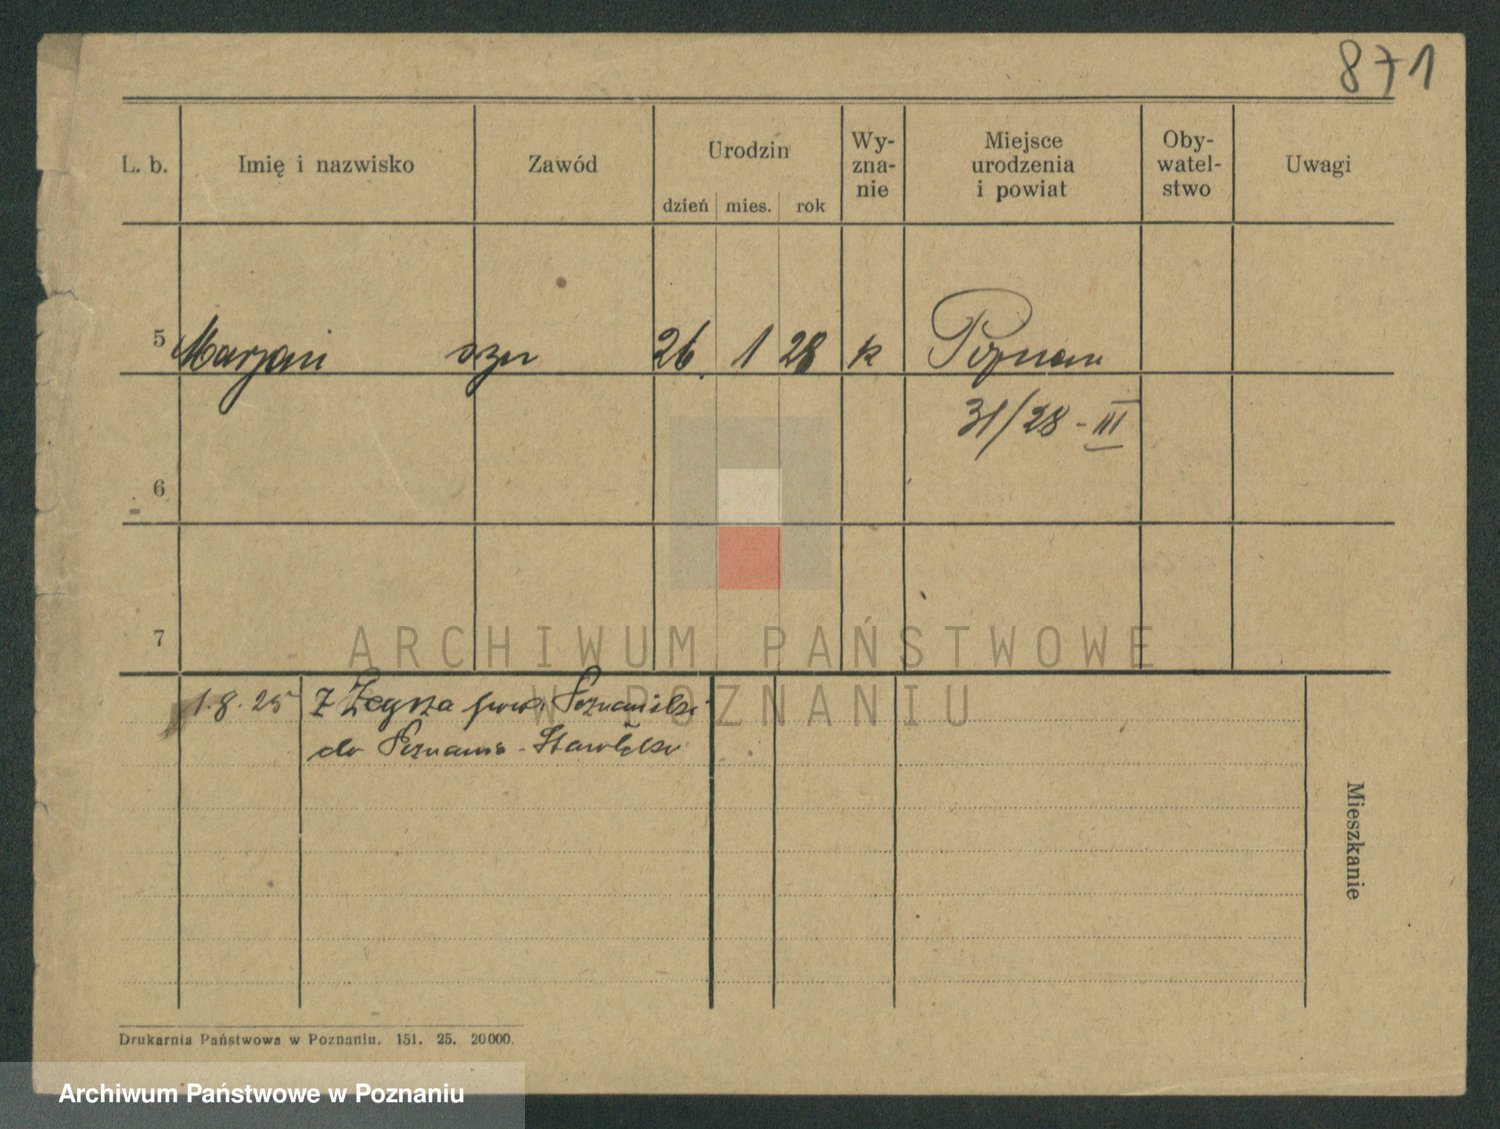 871
L. b.
Imię i nazwisko
Zawód
Urodzin
dzień mies. rok
Wy-
zna-
nie
Miejsce
urodzenia
i powiat
Oby-
watel-
stwo
Uwagi
5 Marjan syn 26. 1 28 k Poznań
31/28 - III
6
7
ARCHIWUM PAŃSTWOWE
W POZNANIU
1.8.25 Z Żegrza pow. Poznański
do Poznania - Starołęka
Mieszkanie
Drukarnia Państwowa w Poznaniu. 151. 25. 20000.
Archiwum Państwowe w Poznaniu